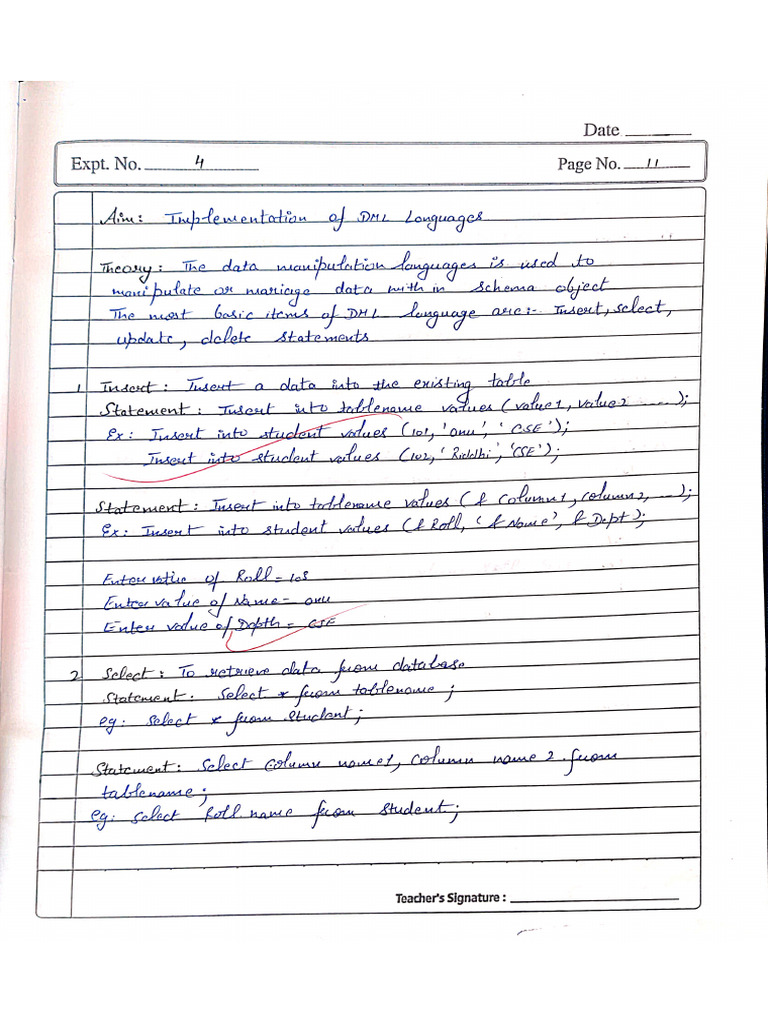 Date
Expt. No. 4 Page No. 11
Aim: Implementation of DML Languages
Theory: The data manipulation languages is used to
manipulate or mariage data with in schema object
The most basic items of DML language are:- Insert, select,
update, delete statements
1 Insert: Insert a data into the existing table
Statement: Insert into tablename values (value1, value2 .....);
Ex: Insert into student values (101, 'anu', 'CSE');
Insert into student values (102, 'Riddhi', 'CSE');
Statement: Insert into tablename values (& Column1, column2, ....);
Ex: Insert into student values (& Roll, '& Name', & Dept);
Enter value of Roll = 103
Enter value of Name = anu
Enter value of Depth = CSE
2 Select: To retrieve data from database
Statement: Select * from tablename;
eg: Select * from Student;
Statement: Select Column name1, Column name 2 from
tablename;
eg: Select Roll name from Student;
Teacher's Signature: